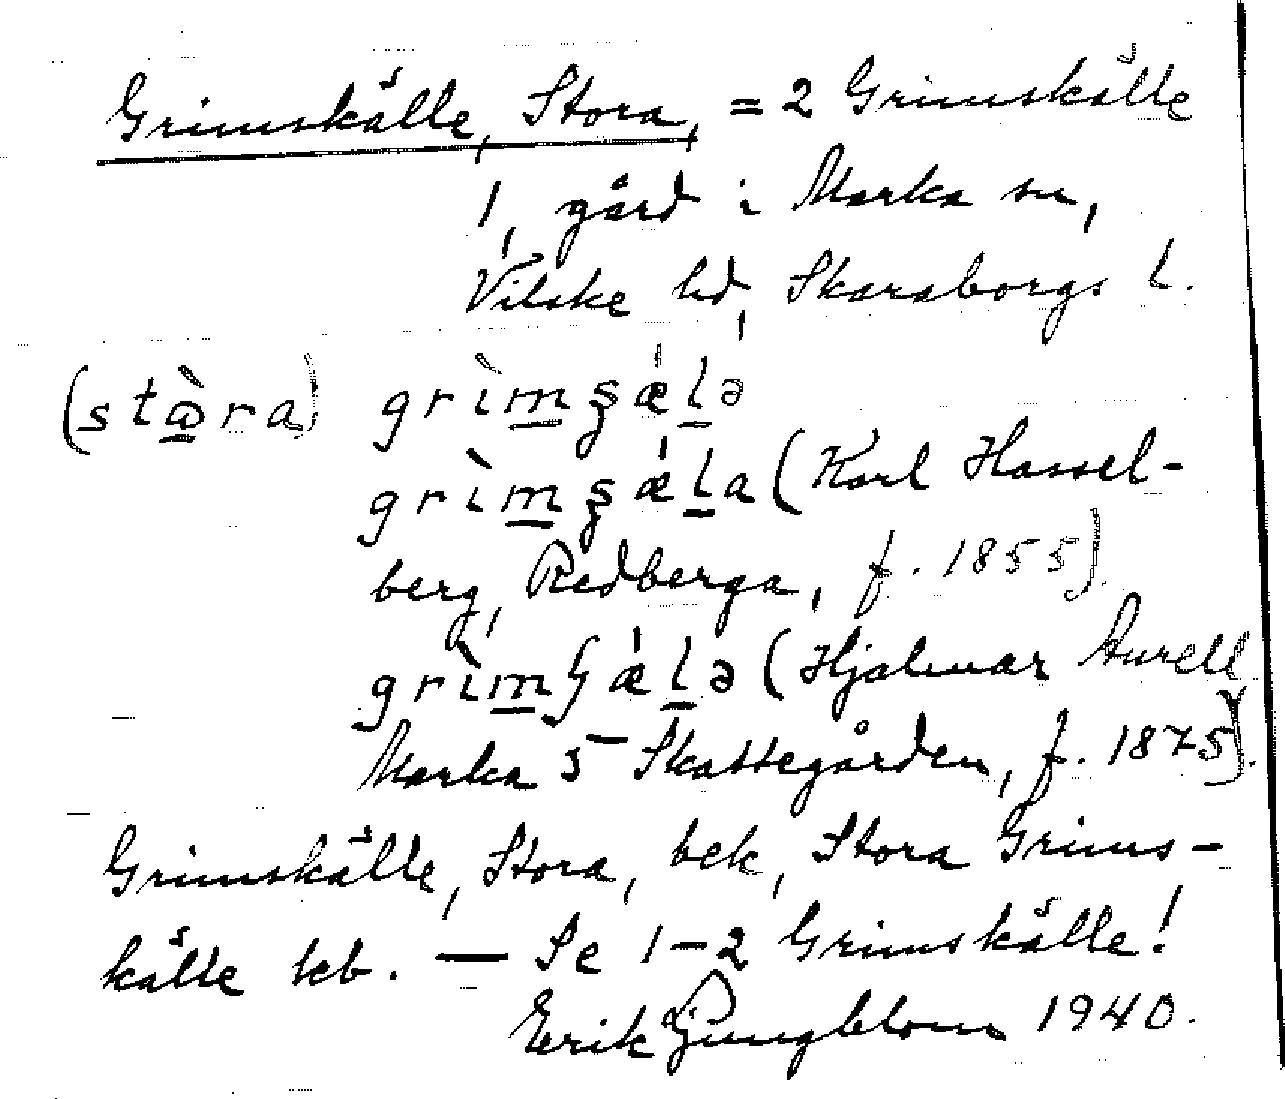 Grimskälle, Stora, = 2 Grimskälle
1, gård i Marka sn,
Vilske hd, Skaraborgs l.
(stὼra) grìmʂæ̍lə
grìmʂæ̍la (Karl Hassel-
berg, Redberga, f. 1855).
grìmʃæ̍lə (Hjalmar Aurell
Marka 5 Skattegården, f. 1875).
Grimskälle, Stora, bek, Stora Grims-
källe keb. — Se 1-2 Grimskälle!
Erik Ljungblom 1940.